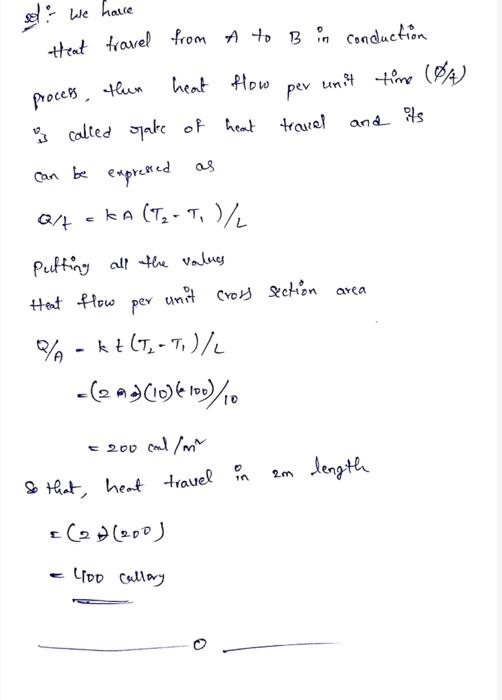 sol:- We have
Heat travel from A to B in conduction
process, then heat flow per unit time (Q/t)
is called rate of heat travel and its
can be expressed as
Q/t = kA (T₂ - T₁)/L
Putting all the values
Heat flow per unit cross section area
Q/A = kt (T₂ - T₁)/L
= (10) 100)/10
= 200 cal/m²
So that, heat travel in 2m length
= (2) (200)
= 400 callory